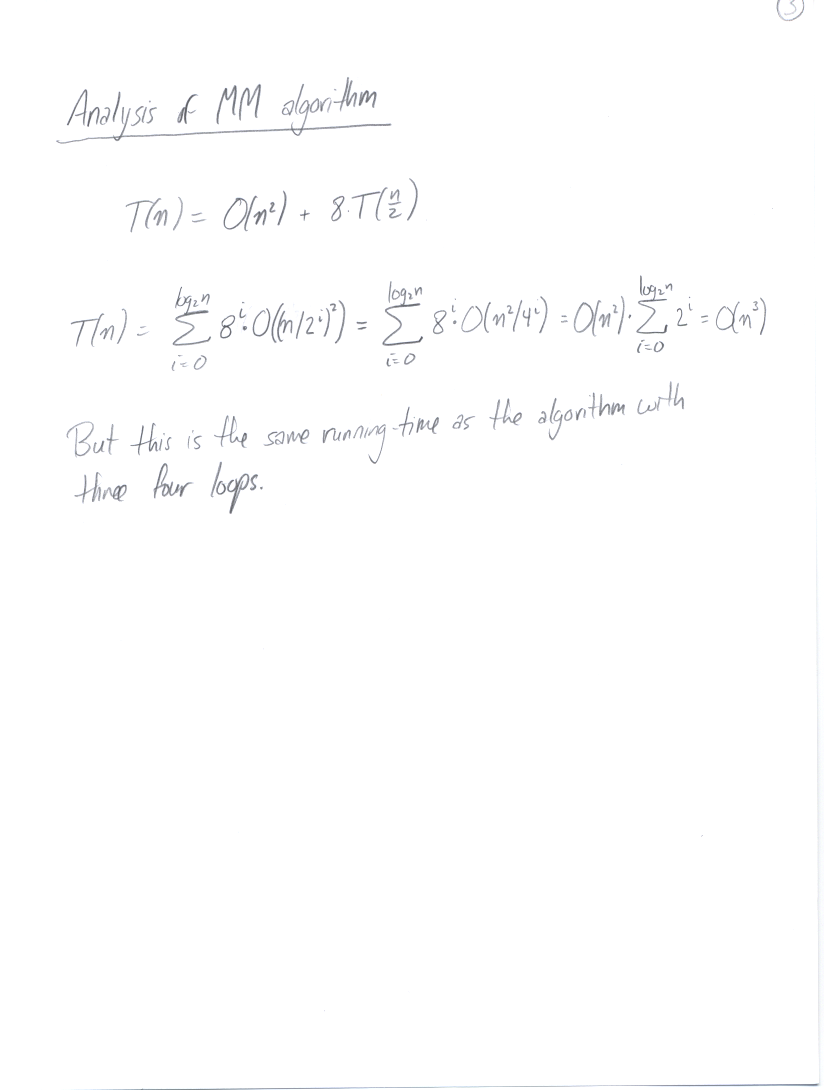 3
Analysis of MM algorithm
T(n) = O(n²) + 8·T(n/2)
T(n) = ∑_{i=0}^{log₂n} 8ⁱ·O((n/2ⁱ)²) = ∑_{i=0}^{log₂n} 8ⁱ·O(n²/4ⁱ) = O(n²)·∑_{i=0}^{log₂n} 2ⁱ = O(n³)
But this is the same running-time as the algorithm with
three four loops.